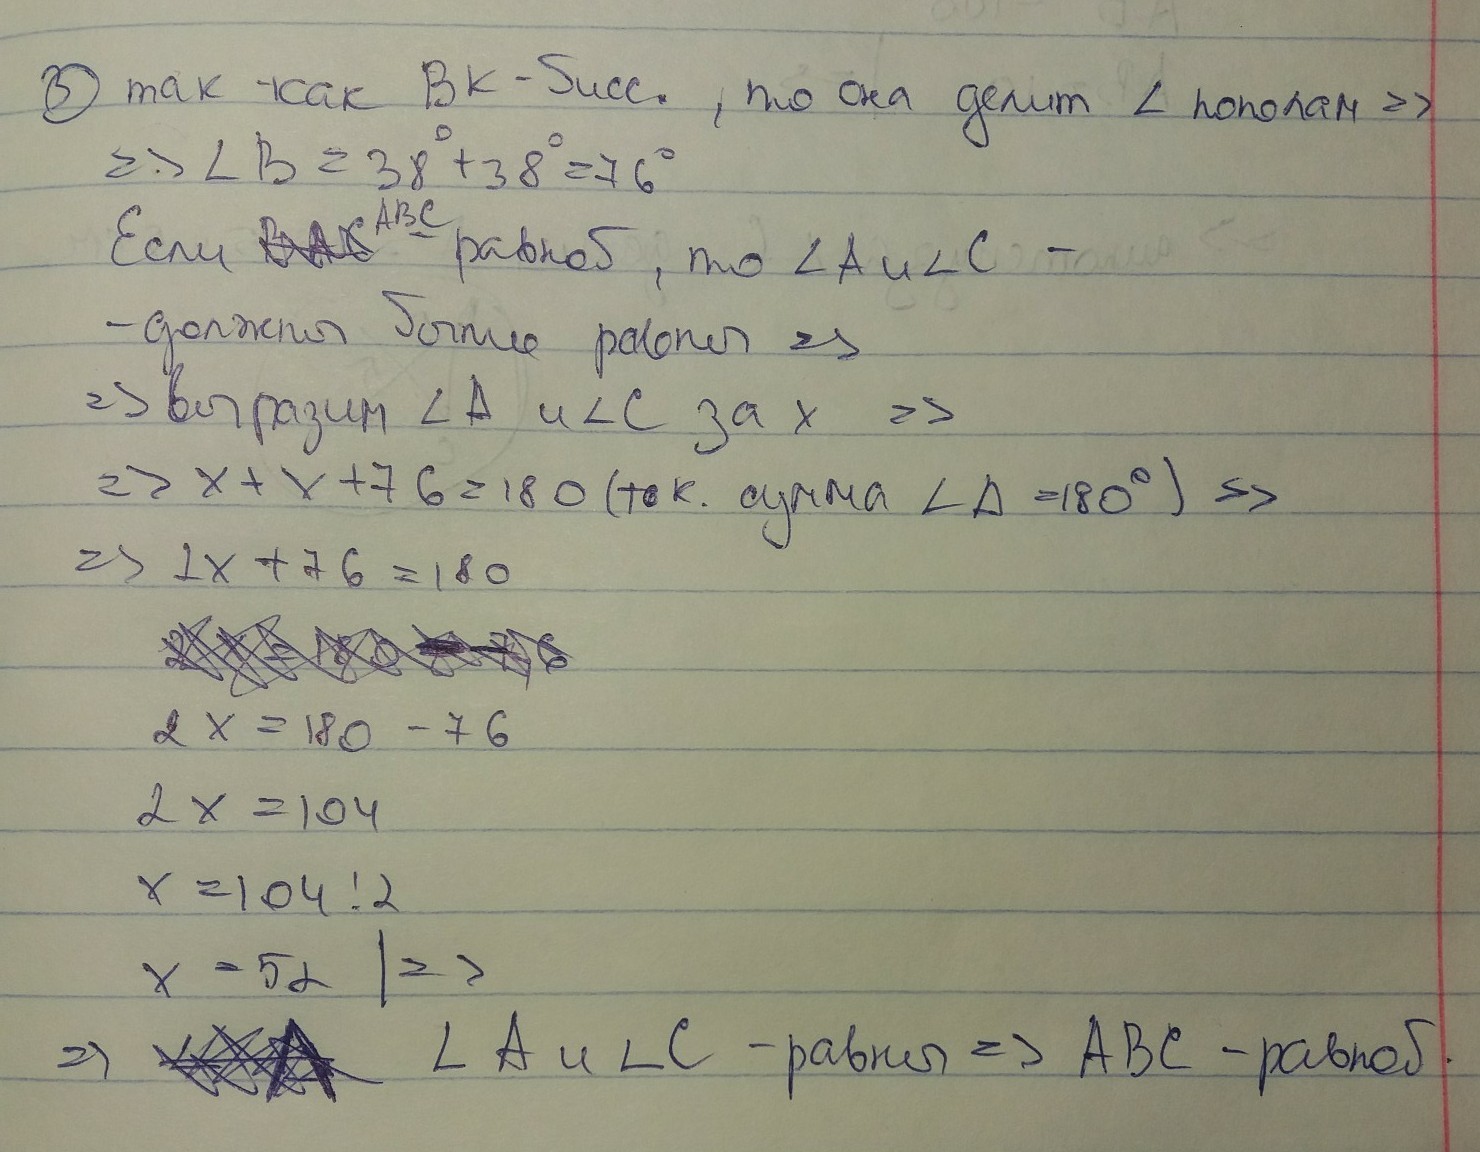 ③ так как BK - бисс., то она делит ∠ пополам =>
=> ∠B = 38° + 38° = 76°
Если ABC - равноб, то ∠A и ∠C -
- должны быть равны =>
=> выразим ∠A и ∠C за x =>
=> x + x + 76 = 180 (так. сумма ∠ Δ = 180°) =>
=> 2x + 76 = 180
2x = 180 - 76
2x = 104
x = 104 : 2
x = 52 | =>
=> ∠A и ∠C - равны => ABC - равноб.